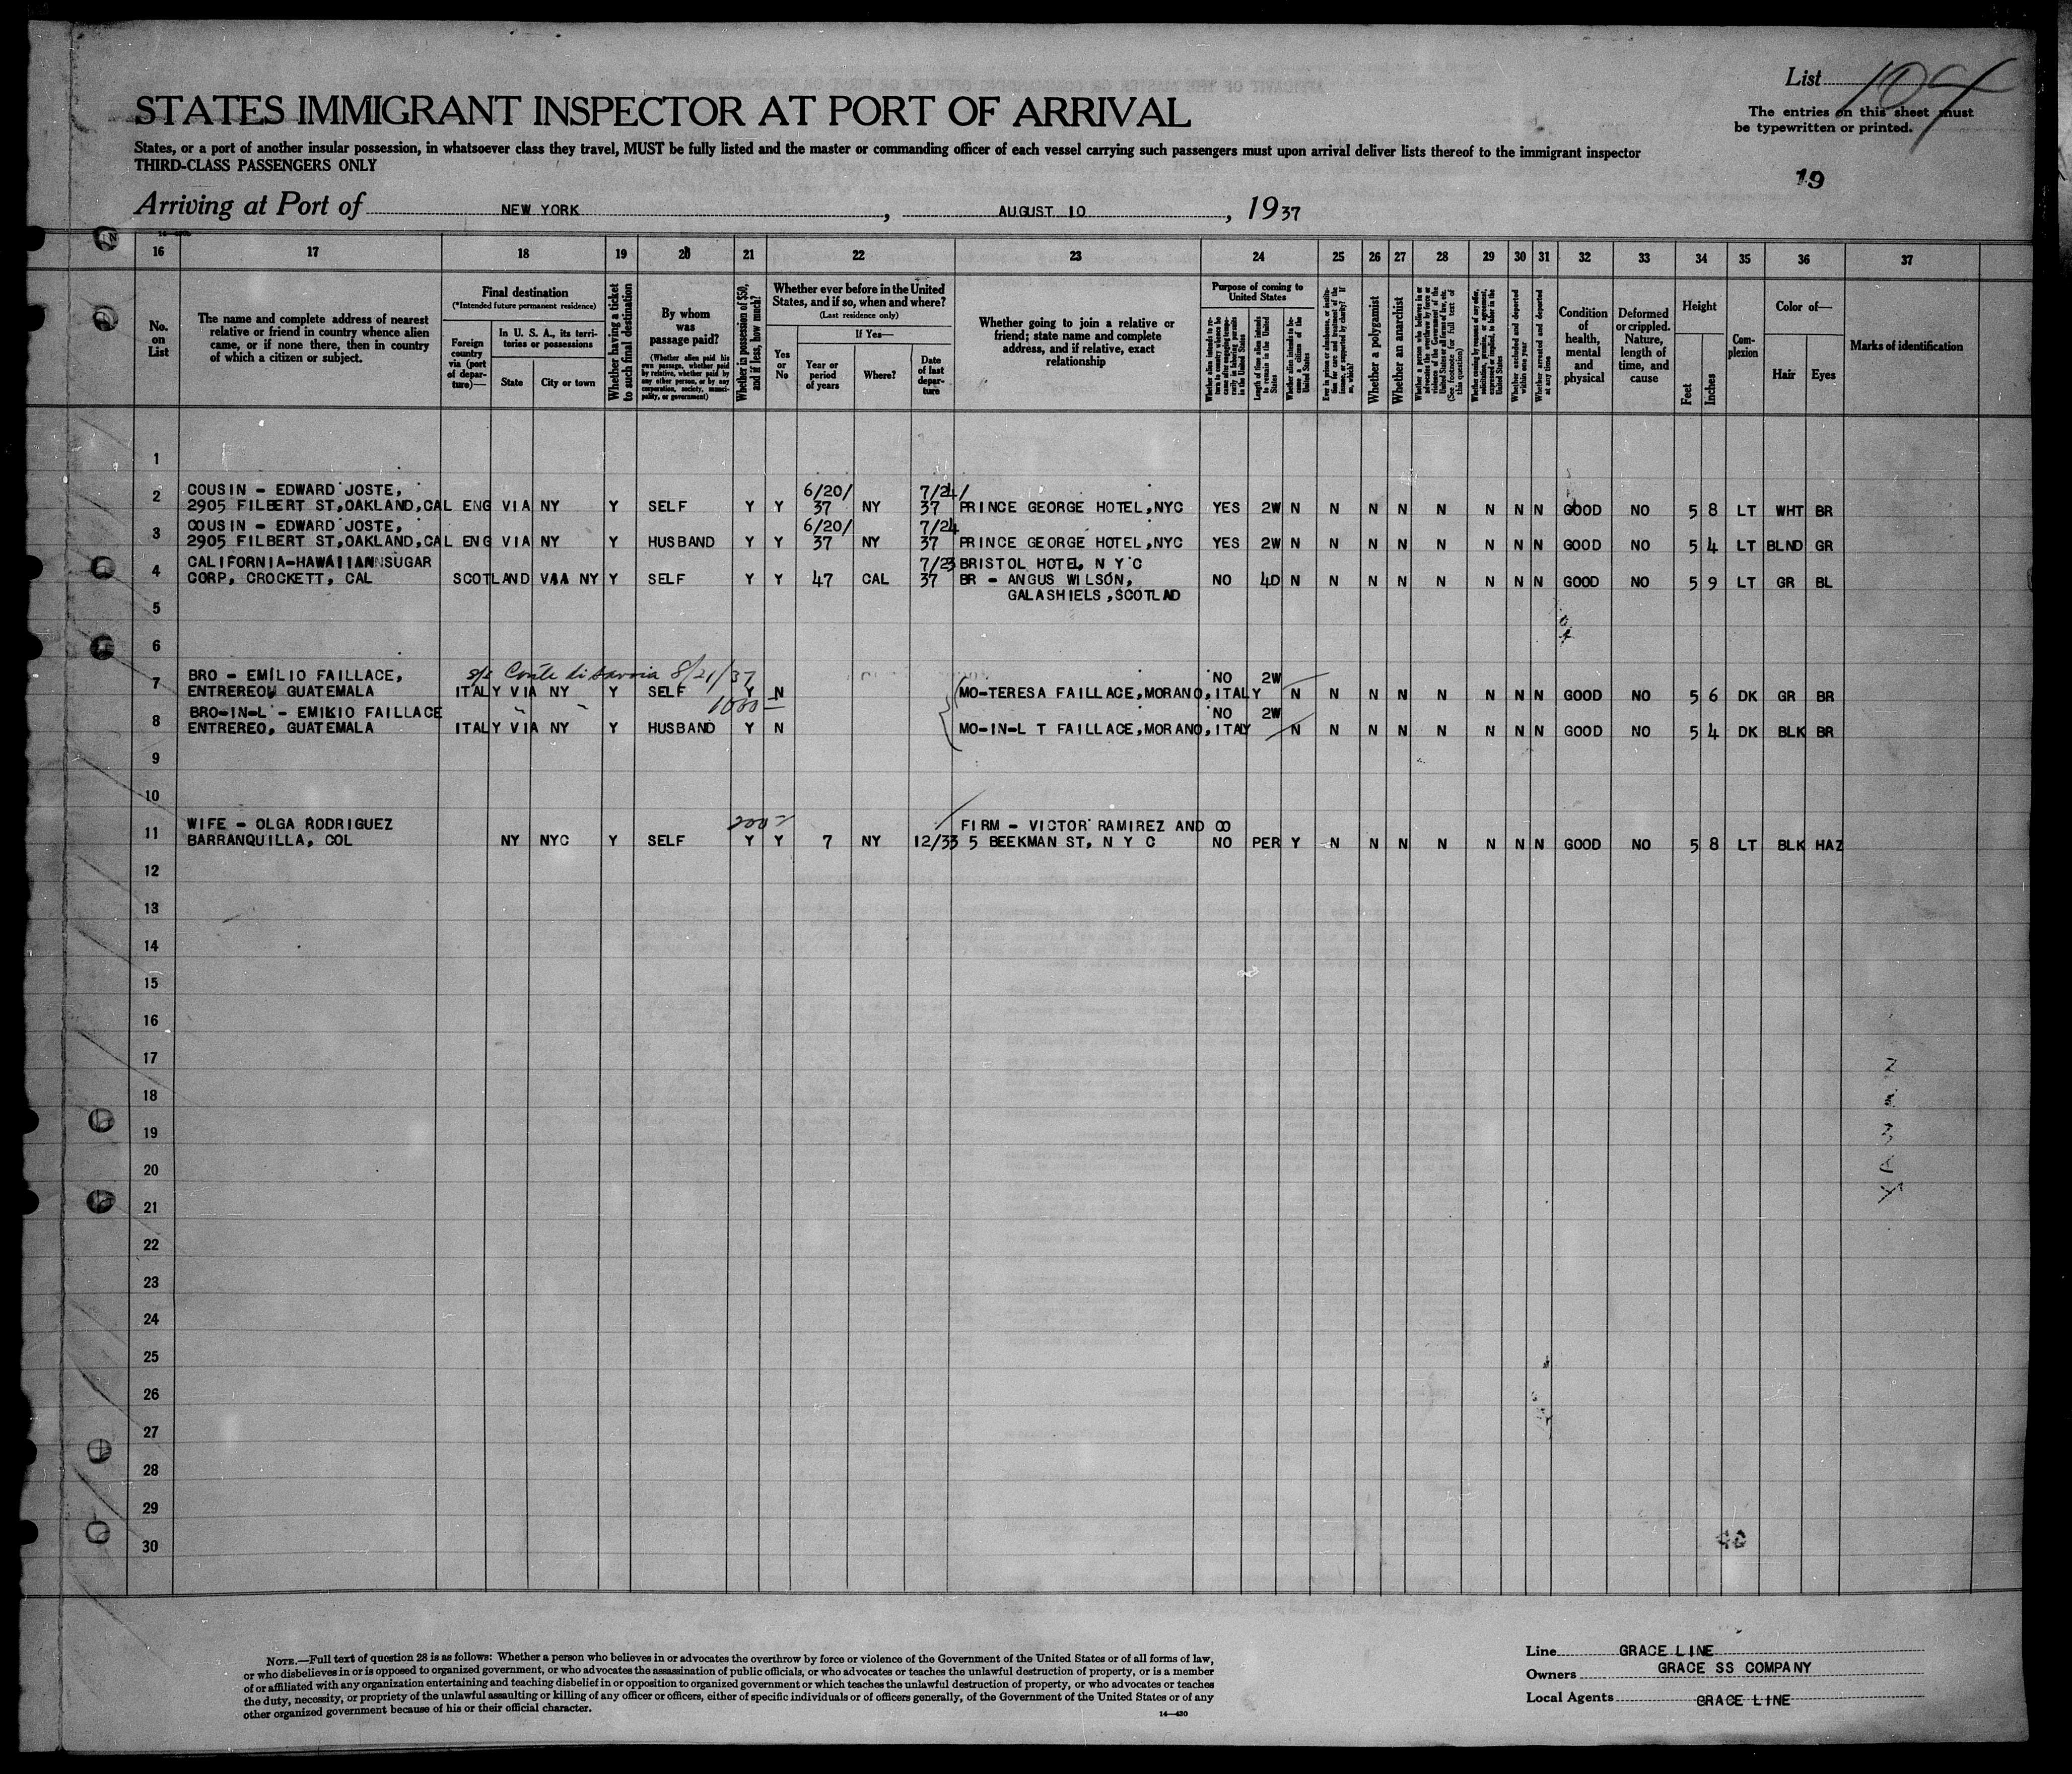 List 104
The entries on this sheet must
be typewritten or printed.
STATES IMMIGRANT INSPECTOR AT PORT OF ARRIVAL
States, or a port of another insular possession, in whatsoever class they travel, MUST be fully listed and the master or commanding officer of each vessel carrying such passengers must upon arrival deliver lists thereof to the immigrant inspector
THIRD-CLASS PASSENGERS ONLY
19
Arriving at Port of NEW YORK, AUGUST 10, 1937
16 17 18 19 20 21 22 23 24 25 26 27 28 29 30 31 32 33 34 35 36 37
No. on List
The name and complete address of nearest
relative or friend in country whence alien
came, or if none there, then in country
of which a citizen or subject.
Final destination
(*Intended future permanent residence)
Foreign country via (port of departure)—
In U. S. A., its territories or possessions
State City or town
Whether having a ticket to such final destination
By whom was passage paid?
(Whether alien paid his own passage, whether paid by relative, whether paid by any other person, or by any corporation, society, municipality, or government)
Whether in possession of $50, and if less, how much?
Whether ever before in the United
States, and if so, when and where?
(Last residence only)
Yes or No
If Yes—
Year or period of years
Where?
Date of last departure
Whether going to join a relative or
friend; state name and complete
address, and if relative, exact
relationship
Purpose of coming to United States
Length of time alien intends to remain in the United States
Whether alien intends to become a citizen of the United States
Whether a polygamist
Whether an anarchist
Whether excluded and deported within one year
Whether arrested and deported at any time
Condition of health, mental and physical
Deformed or crippled. Nature, length of time, and cause
Height
Feet Inches
Complexion
Color of—
Hair Eyes
Marks of identification
1
2 COUSIN - EDWARD JOSTE, 6/20/ 7/24/
2905 FILBERT ST,OAKLAND,CAL ENG VIA NY Y SELF Y Y 37 NY 37 PRINCE GEORGE HOTEL,NYC YES 2W N N N N N N N N GOOD NO 5 8 LT WHT BR
3 COUSIN - EDWARD JOSTE, 6/20/ 7/24
2905 FILBERT ST,OAKLAND,CAL ENG VIA NY Y HUSBAND Y Y 37 NY 37 PRINCE GEORGE HOTEL,NYC YES 2W N N N N N N N N GOOD NO 5 4 LT BLND GR
4 CALIFORNIA-HAWAIIANNSUGAR 7/23 BRISTOL HOTEL, N Y C
CORP, CROCKETT, CAL SCOTLAND VAA NY Y SELF Y Y 47 CAL 37 BR - ANGUS WILSON, NO 4D N N N N N N N N GOOD NO 5 9 LT GR BL
GALASHIELS,SCOTLAD
5
6
s/s Conte di Savoia 8/21/37
7 BRO - EMILIO FAILLACE, NO 2W
ENTREREOU GUATEMALA ITALY VIA NY Y SELF Y N MO-TERESA FAILLACE,MORANO,ITALY N N N N N N N N GOOD NO 5 6 DK GR BR
1000
8 BRO-IN-L - EMIKIO FAILLACE NO 2W
ENTREREO, GUATEMALA ITALY VIA NY Y HUSBAND Y N MO-IN-L T FAILLACE,MORANO,ITALY N N N N N N N N GOOD NO 5 4 DK BLK BR
9
10
200
11 WIFE - OLGA RODRIGUEZ FIRM - VICTOR RAMIREZ AND CO
BARRANQUILLA, COL NY NYC Y SELF Y Y 7 NY 12/33 5 BEEKMAN ST, N Y C NO PER Y N N N N N N N GOOD NO 5 8 LT BLK HAZ
12
13
14
15
16
17
18
19
20
21
22
23
24
25
26
27
28
29
30
NOTE.—Full text of question 28 is as follows: Whether a person who believes in or advocates the overthrow by force or violence of the Government of the United States or of all forms of law,
or who disbelieves in or is opposed to organized government, or who advocates the assassination of public officials, or who advocates or teaches the unlawful destruction of property, or is a member
of or affiliated with any organization entertaining and teaching disbelief in or opposition to organized government or which teaches the unlawful destruction of property, or who advocates or teaches
the duty, necessity, or propriety of the unlawful assaulting or killing of any officer or officers, either of specific individuals or of officers generally, of the Government of the United States or of any
other organized government because of his or their official character.
14—430
Line GRACE LINE
Owners GRACE SS COMPANY
Local Agents GRACE LINE